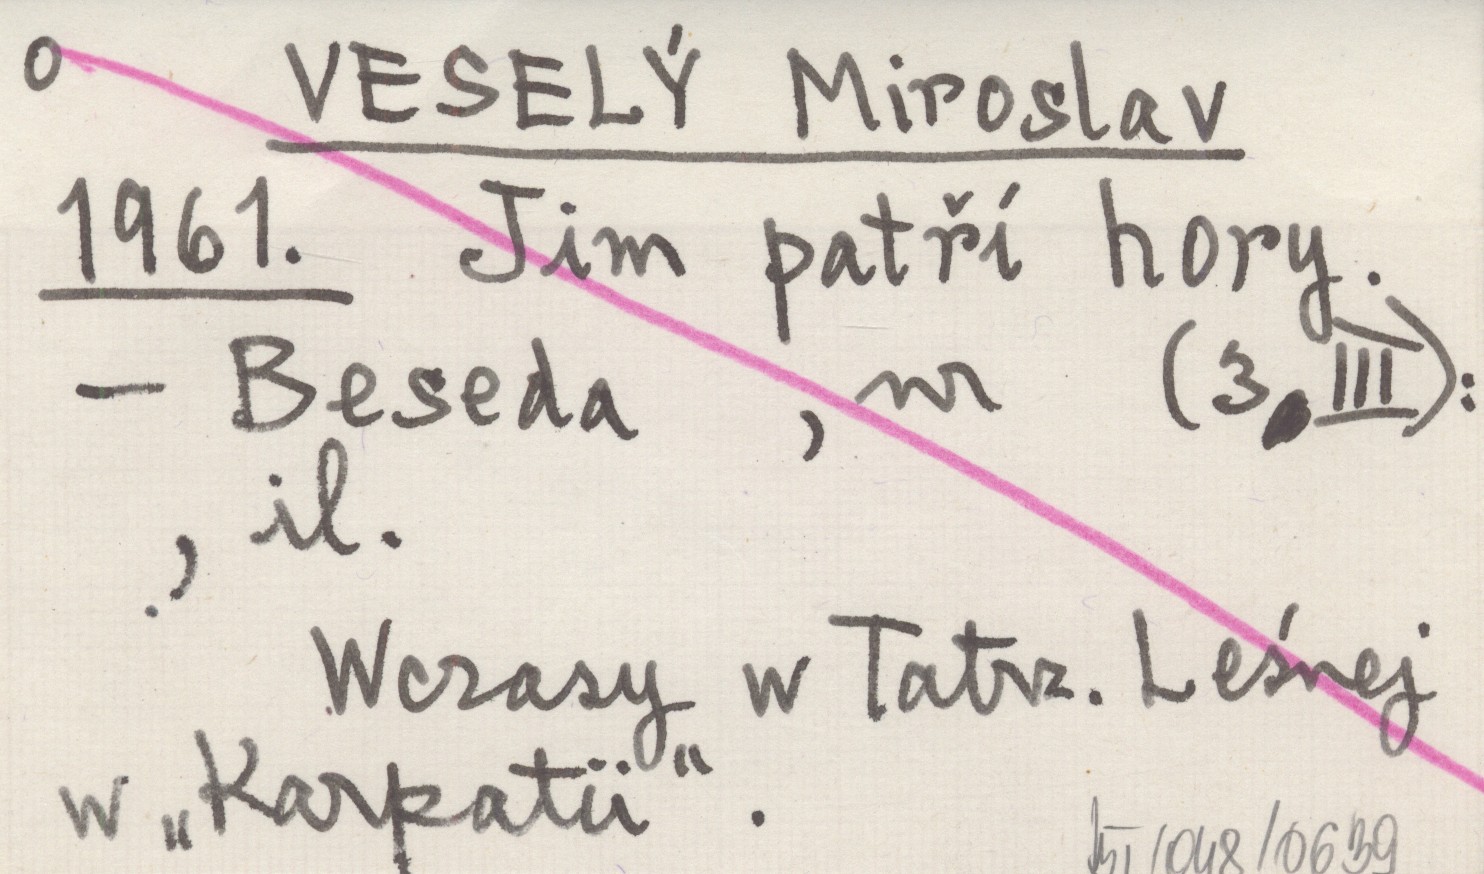 o VESELÝ Miroslav
1961. Jim patří hory.
– Beseda , nr (3.III):
, il.
Wczasy w Tatrz. Leśnej
w „Karpatii".
/048/0639